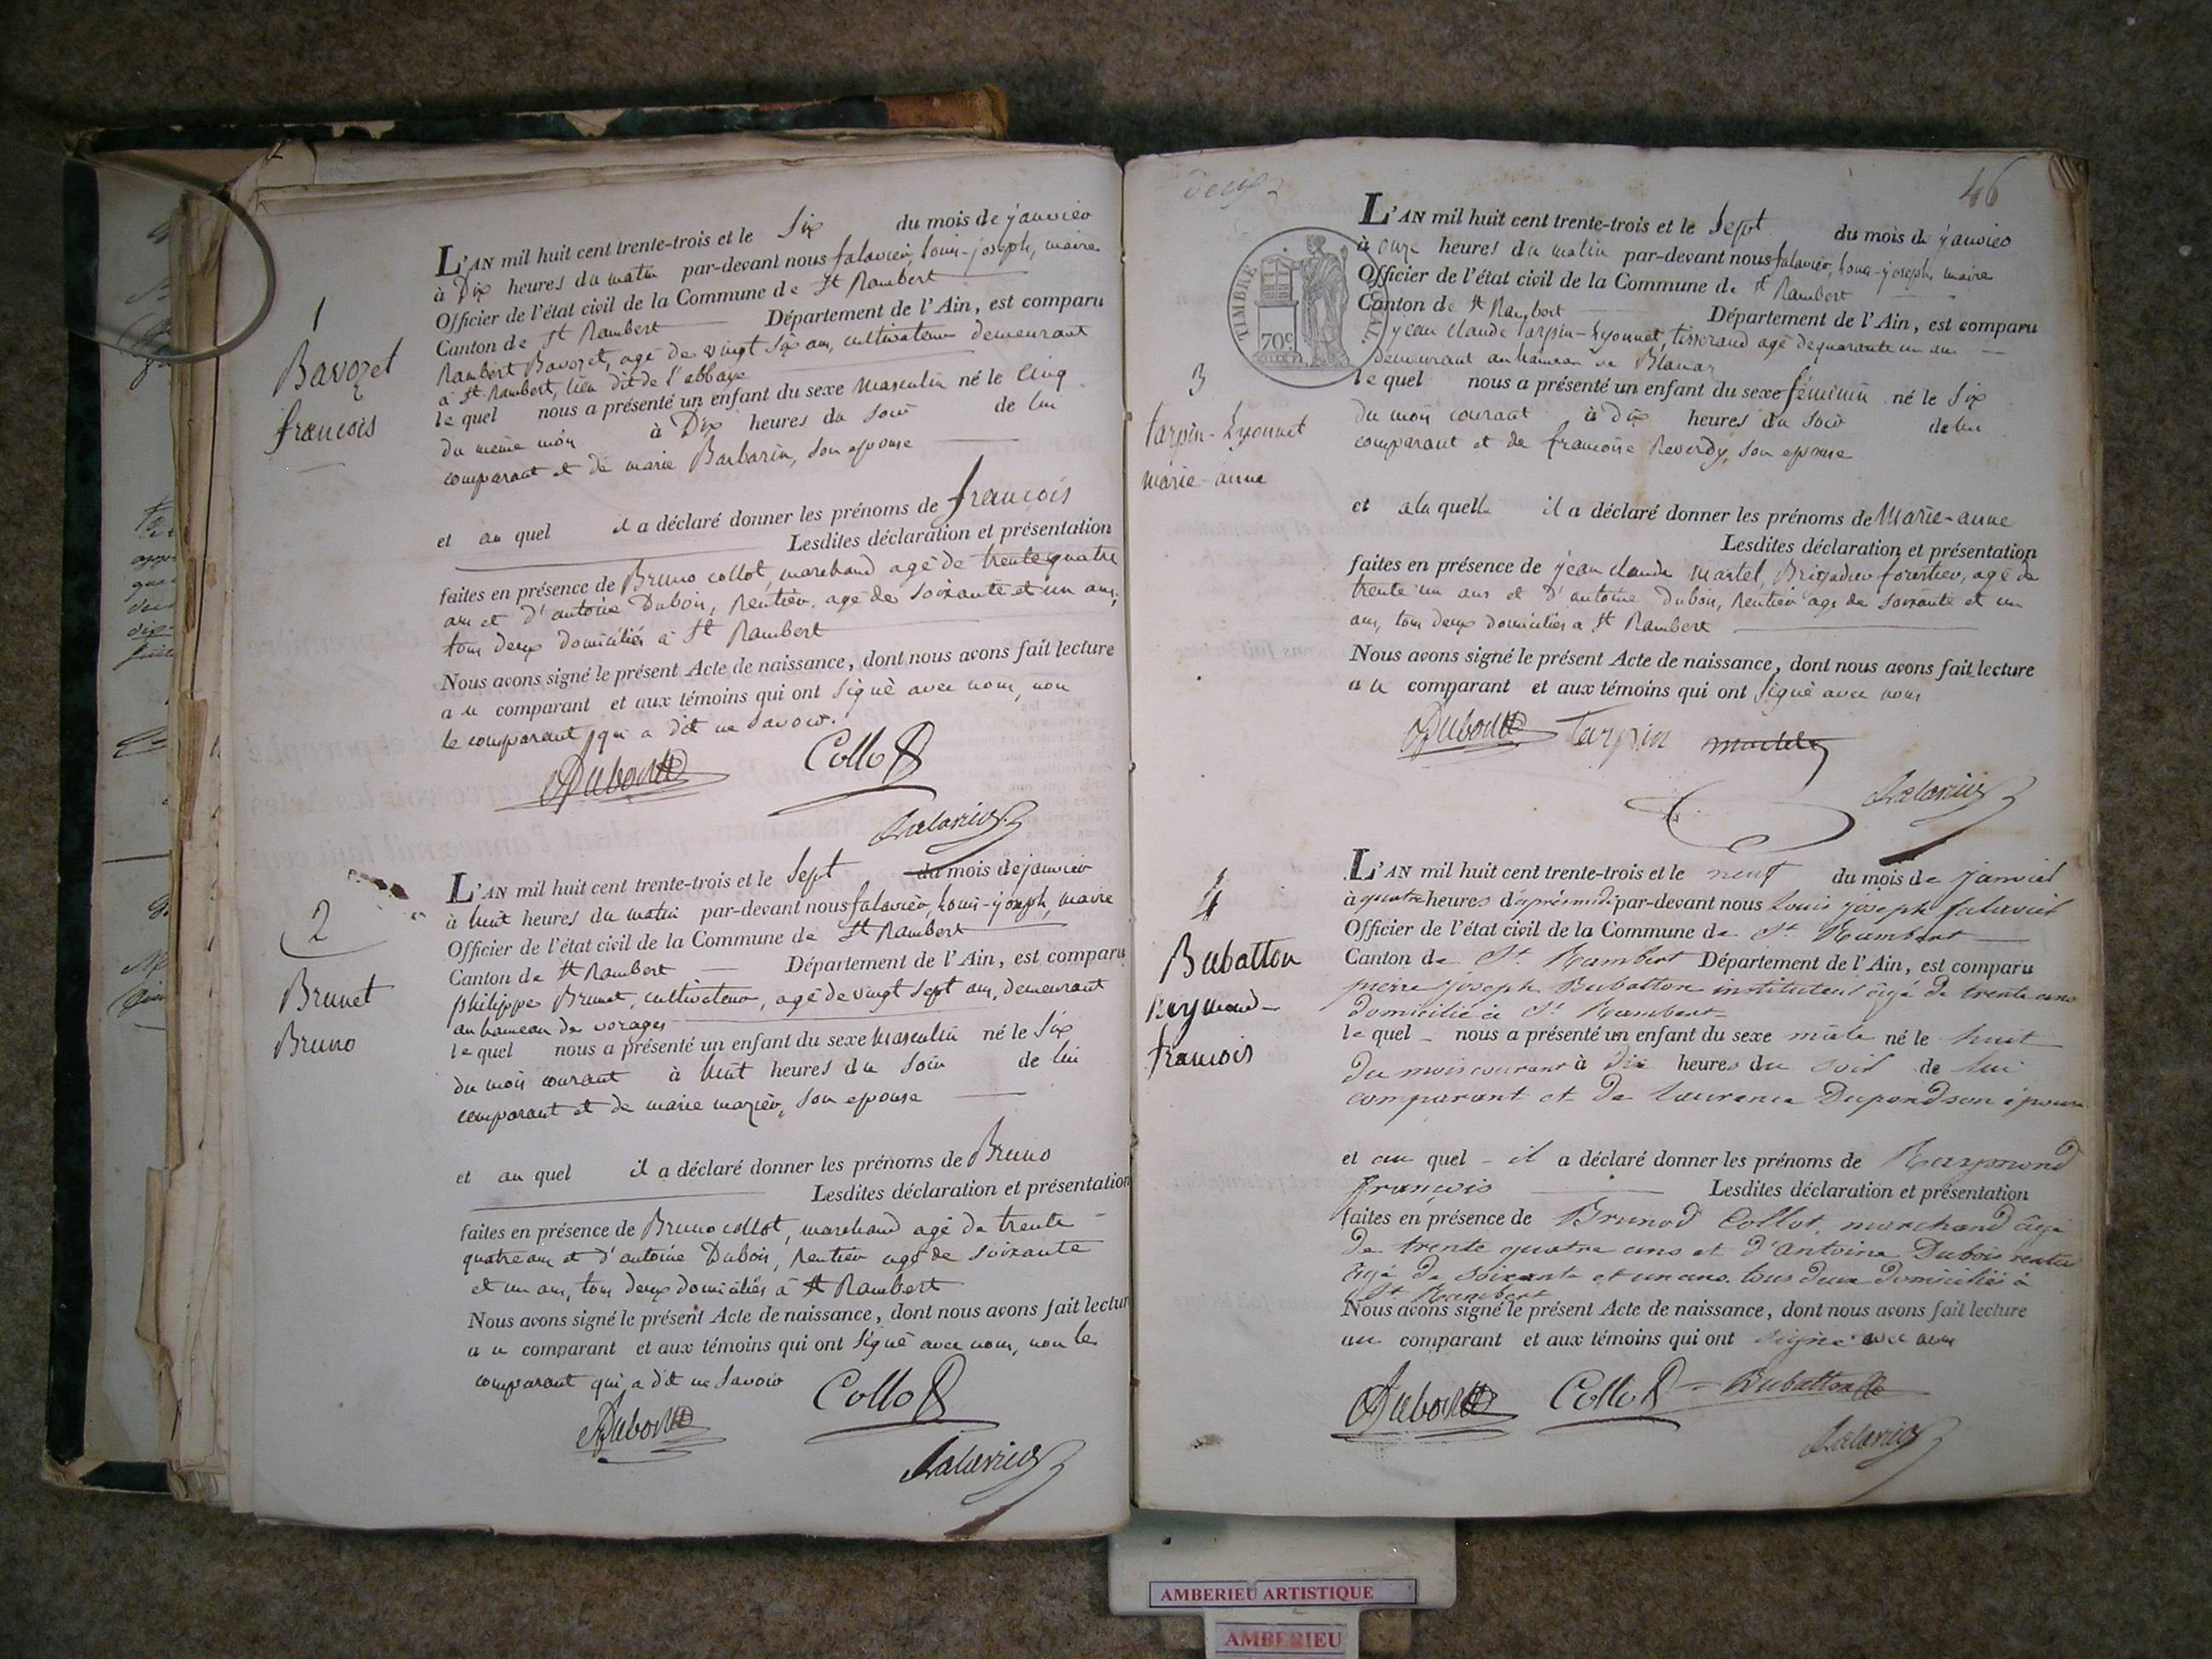 1
Bavozet
francois
L'AN mil huit cent trente-trois et le Six du mois de janvier
à Dix heures du matin par-devant nous falavier, louis-joseph, maire
Officier de l'état civil de la Commune de St Rambert
Canton de St Rambert Département de l'Ain, est comparu
Rambert Bavozet, agé de vingt six ans, cultivateur demeurant
à St Rambert, lieu dit de l'abbaye
le quel nous a présenté un enfant du sexe masculin né le Cinq
du meme mois à Dix heures du soir de lui
comparant et de marie Barbarin, son epouse
et au quel il a déclaré donner les prénoms de francois
Lesdites déclaration et présentation
faites en présence de Bruno collot, marchand agé de trente quatre
ans et d'antoine Dubois, Rentier, agé de soixante et un ans,
tous deux domiciliés à St Rambert
Nous avons signé le présent Acte de naissance, dont nous avons fait lecture
au comparant et aux témoins qui ont signé avec nous, non
le comparant qui a dit ne savoir.
Dubois Collot
falavier
2
Brunet
Bruno
L'AN mil huit cent trente-trois et le Sept du mois de janvier
à huit heures du matin par-devant nous falavier, louis-joseph, maire
Officier de l'état civil de la Commune de St Rambert
Canton de St Rambert Département de l'Ain, est comparu
philippe Brunet, cultivateur, agé de vingt sept ans, demeurant
au hameau de vorages
le quel nous a présenté un enfant du sexe masculin né le Six
du mois courant à huit heures du soir de lui
comparant et de marie mazier, son epouse
et au quel il a déclaré donner les prénoms de Bruno
Lesdites déclaration et présentation
faites en présence de Bruno collot, marchand agé de trente
quatre ans et d'antoine Dubois, Rentier agé de soixante
et un ans, tous deux domiciliés à St Rambert
Nous avons signé le présent Acte de naissance, dont nous avons fait lectur
au comparant et aux témoins qui ont signé avec nous, non le
comparant qui a dit ne savoir
Dubois Collot
falavier
deux
46
TIMBRE ROYAL
70c
3
tarpin-Lyonnet
marie-anne
L'AN mil huit cent trente-trois et le Sept du mois de janvier
à onze heures du matin par-devant nous falavier, louis-joseph maire
Officier de l'état civil de la Commune de St Rambert
Canton de St Rambert Département de l'Ain, est comparu
jean claude tarpin-Lyonnet, tisserand agé de quarante un ans
demeurant au hameau de Blanaz
le quel nous a présenté un enfant du sexe féminin né le Six
du mois courant à dix heures du soir de lui
comparant et de francoise Reverdy, son epouse
et a la quelle il a déclaré donner les prénoms de Marie-anne
Lesdites déclaration et présentation
faites en présence de jean claude Martel, Brigadier forestier, agé de
trente un ans et d'antoine Dubois, Rentier agé de soixante et un
ans, tous deux domiciliés à St Rambert
Nous avons signé le présent Acte de naissance, dont nous avons fait lecture
au comparant et aux témoins qui ont signé avec nous
Dubois Tarpin martel
falavier
4
Bubatton
Raymond-
francois
L'AN mil huit cent trente-trois et le neuf du mois de janvier
à quatre heures d'après midi par-devant nous Louis joseph falavier
Officier de l'état civil de la Commune de St Rambert
Canton de St Rambert Département de l'Ain, est comparu
pierre joseph Bubatton instituteur âgé de trente ans
domicilié à St Rambert
le quel nous a présenté un enfant du sexe mâle né le huit
du mois courant à dix heures du soir de lui
comparant et de Laurence Dupond son épouse
et au quel il a déclaré donner les prénoms de Raymond
francois Lesdites déclaration et présentation
faites en présence de Brunod Collot marchand âgé
de trente quatre ans et d'Antoine Dubois rentier
âgé de soixante et un ans tous deux domiciliés à
St Rambert
Nous avons signé le présent Acte de naissance, dont nous avons fait lecture
au comparant et aux témoins qui ont signé avec nous
Dubois Collot Bubatton
falavier
AMBERIEU ARTISTIQUE
AMBERIEU